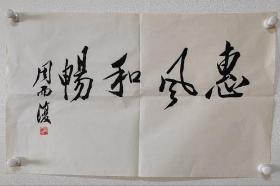 惠风和暢
周而復